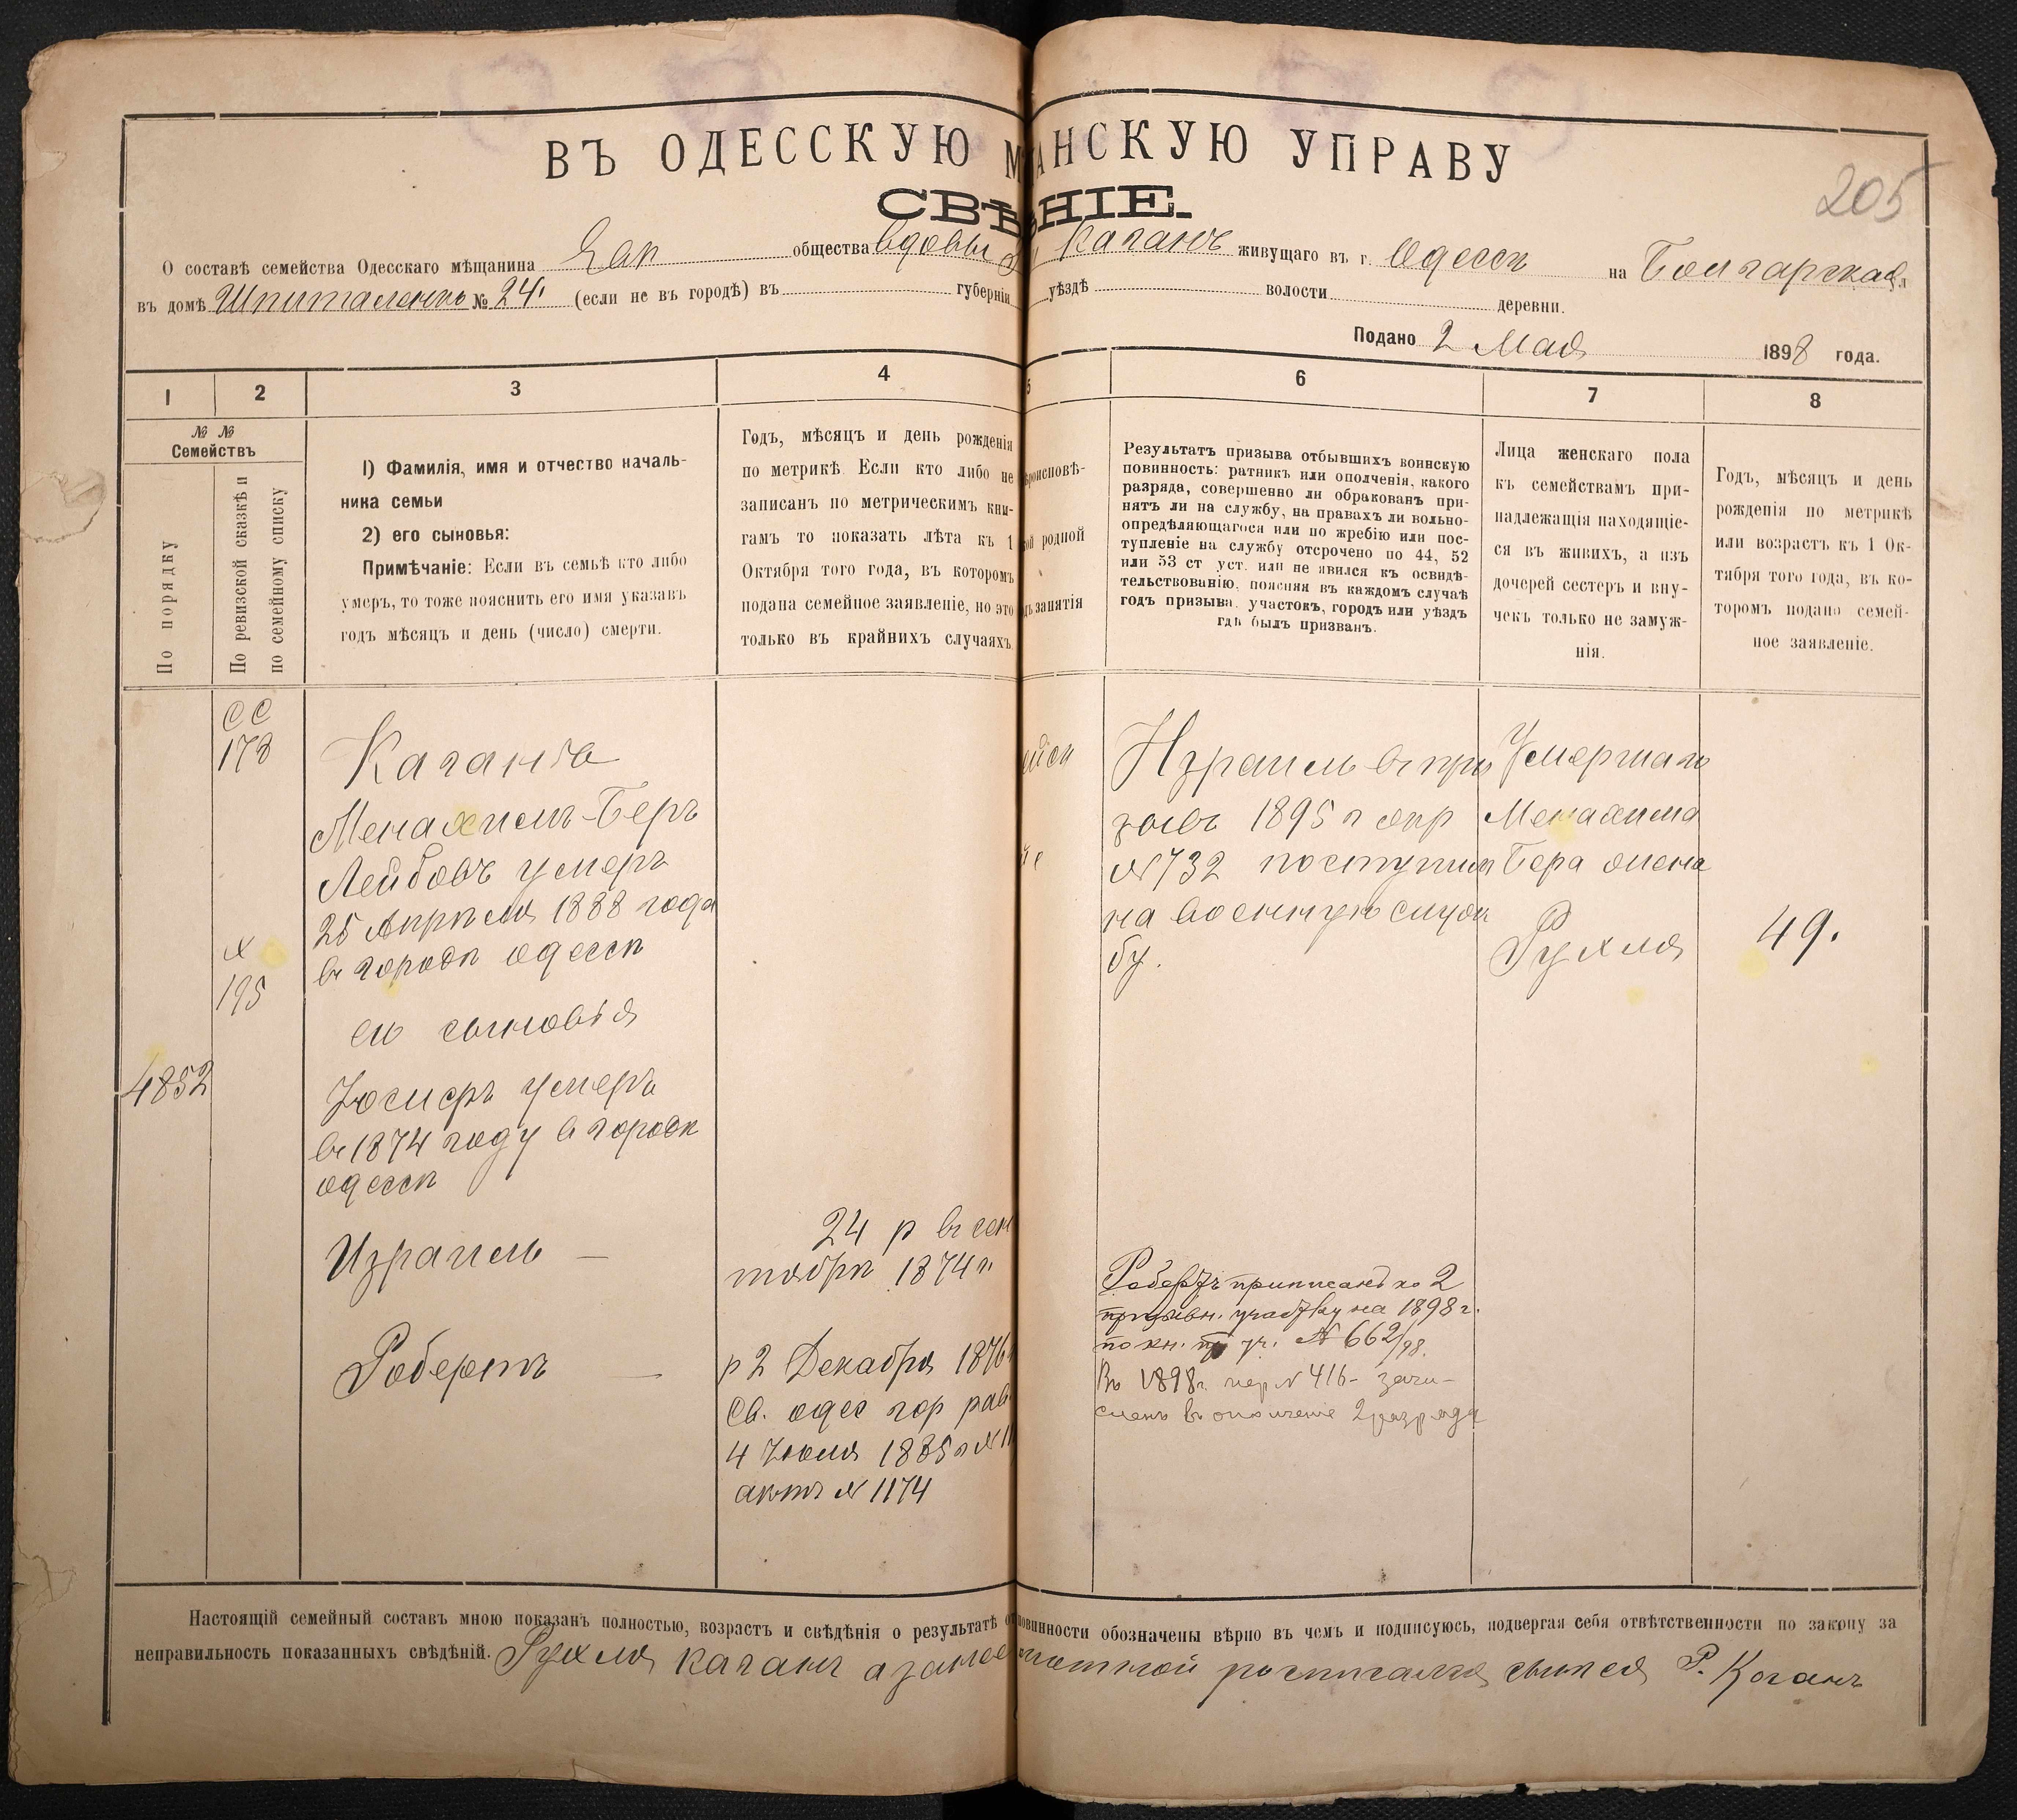 205
ВЪ ОДЕССКУЮ М АНСКУЮ УПРАВУ
СВѢ НІЕ.
О составѣ семейства Одесскаго мѣщанина общества вдовы Каганъ живущаго въ г. Одессѣ на Болгарская ул
въ домѣ Шпиталенко № 24 (если не въ городѣ) въ губерніи уѣздѣ волости деревни.
Подано 2 Мая 1898 года.
1 2 3 4 5 6 7 8
№ №
Семействъ
По порядку
По ревизской сказкѣ и
по семейному списку
1) Фамилія, имя и отчество началь-
ника семьи
2) его сыновья:
Примѣчаніе: Если въ семьѣ кто либо
умеръ, то тоже пояснить его имя указавъ
годъ мѣсяцъ и день (число) смерти.
Годъ, мѣсяцъ и день рожденія
по метрикѣ Если кто либо не
записанъ по метрическимъ кни-
гамъ то показать лѣта къ 1
Октября того года, въ которомъ
подана семейное заявленіе, но это
только въ крайнихъ случаяхъ
роисповѣ-
ой родной
ъ занятія
Результатъ призыва отбывшихъ воинскую
повинность: ратникъ или ополченія, какого
разряда, совершенно ли обракованъ при-
нятъ ли на службу, на правахъ ли вольно-
опредѣляющагося или по жребію или пос-
тупленіе на службу отсрочено по 44, 52
или 53 ст уст. или не явился къ освидѣ-
тельствованію, поясняя въ каждомъ случаѣ
годъ призыва, участокъ, городъ или уѣздъ
гдѣ былъ призванъ.
Лица женскаго пола
къ семействамъ при-
надлежащія находящіе-
ся въ живихъ, а изъ
дочерей сестеръ и вну-
чекъ только не замуж-
нія.
Годъ, мѣсяцъ и день
рожденія по метрикѣ
или возрастъ къ 1 Ок-
тября того года, въ ко-
торомъ подано семей-
ное заявленіе.
СС
178
195
4852
Каганъ
Менахимъ-Беръ
Лейбовъ умеръ
25 Апрѣля 1888 года
въ городѣ одессѣ
его сыновья
Юсифъ умеръ
въ 1874 году въ городѣ
одессѣ
Израиль —
Робертъ —
24 р въ сен
тябрѣ 1874 г.
р 2 Декабря 1876
Св. одес гор рав
4 Июля 1885 г №
актъ № 1174
ейск
Израиль въ при
зывъ 1895 г жер
№ 732 поступилъ
на военную служ
бу.
Робертъ приписанъ ко 2
призывн. участку на 1898 г.
по кн. пр уч. № 662/98.
Въ 1898 г. жер № 416 - зачи-
сленъ въ ополченіе 2 разряда
Умершаго
Менахима
Бера жена
Рухля
49.
Настоящій семейный составъ мною показанъ полностью, возрастъ и свѣдѣнія о результатѣ от повинности обозначены вѣрно въ чемъ и подписуюсь, подвергая себя отвѣтственности по закону за
неправильность показанныхъ свѣдѣній. Рухля Каганъ а за неграмотной росписался сынъ ея Р. Коганъ